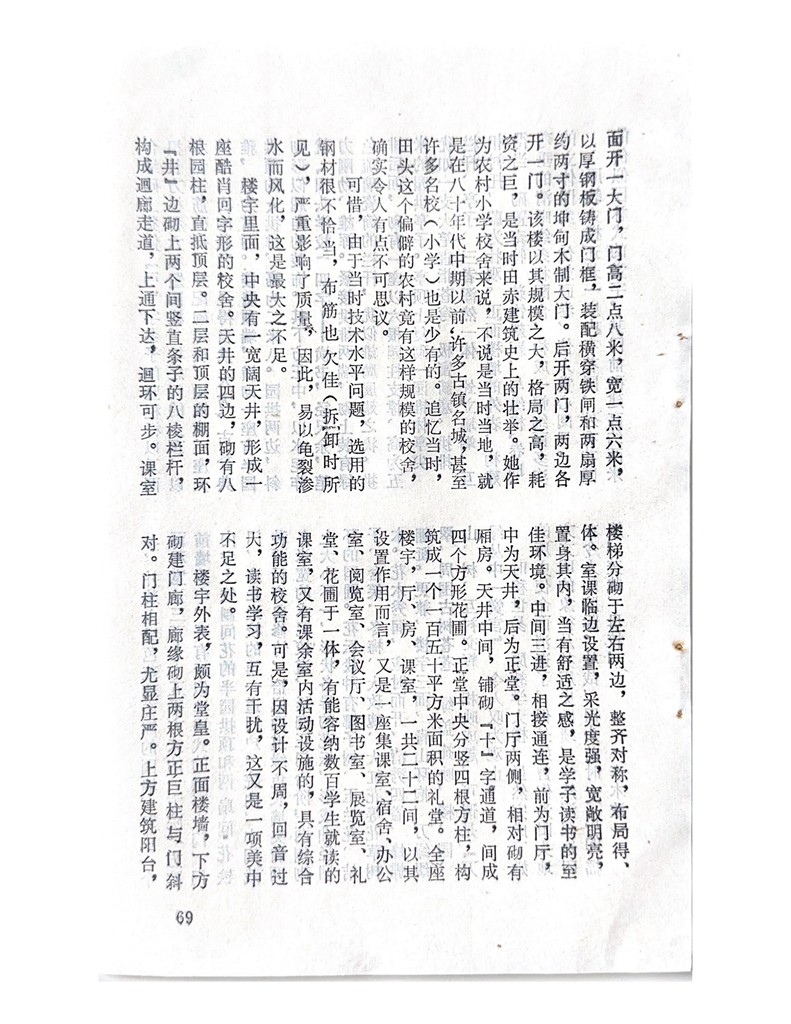 面开一大门，门高二点八米，宽一点六米，
以厚钢板铸成门框，装配横穿铁闸和两扇厚
约两寸的坤甸木制大门。后开两门，两边各
开一门。该楼以其规模之大，格局之高，耗
资之巨，是当时田赤建筑史上的壮举。她作
为农村小学校舍来说，不说是当时当地，就
是在八十年代中期以前，许多古镇名城，甚至
许多名校（小学）也是少有的。追忆当时，
田头这个偏僻的农村竟有这样规模的校舍，
确实令人有点不可思议。
可惜，由于当时技术水平问题，选用的
钢材很不恰当，布筋也欠佳（拆卸时所
见）严重影响了质量，因此，易以龟裂渗
水而风化，这是最大之不足。
楼宇里面，中央有一宽阔天井，形成一
座酷肖回字形的校舍。天井的四边，砌有八
根园柱，直抵顶层。二层和顶层的棚面，环
『井』边砌上两个间竖直条子的八棱栏杆，
构成迴廊走道，上通下达，迴环可步。课室
楼梯分砌于左右两边，整齐对称，布局得、
体。室课临边设置，采光度强，宽敞明亮，
置身其内，当有舒适之感，是学子读书的至
佳环境。中间三进，相接通连，前为门厅，
中为天井，后为正堂。门厅两侧，相对砌有
厢房。天井中间，铺砌『十』字通道，间成
四个方形花圃。正堂中央分竖四根方柱，构
筑成一个一百五十平方米面积的礼堂。全座
楼宇，厅、房、课室，一共二十二间，以其
设置作用而言，又是一座集课室、宿舍、办公
室、阅览室、会议厅、图书室、展览室、礼
堂、花圃于一体，有能容纳数百学生就读的
课室，又有课余室内活动设施的，具有综合
功能的校舍。可是，因设计不周，回音过
大，读书学习，互有干扰，这又是一项美中
不足之处。
楼宇外表，颇为堂皇。正面楼墙，下方
砌建门廊，廊缘砌上两根方正巨柱与门斜
对。门柱相配，尤显庄严。上方建筑阳台，
69